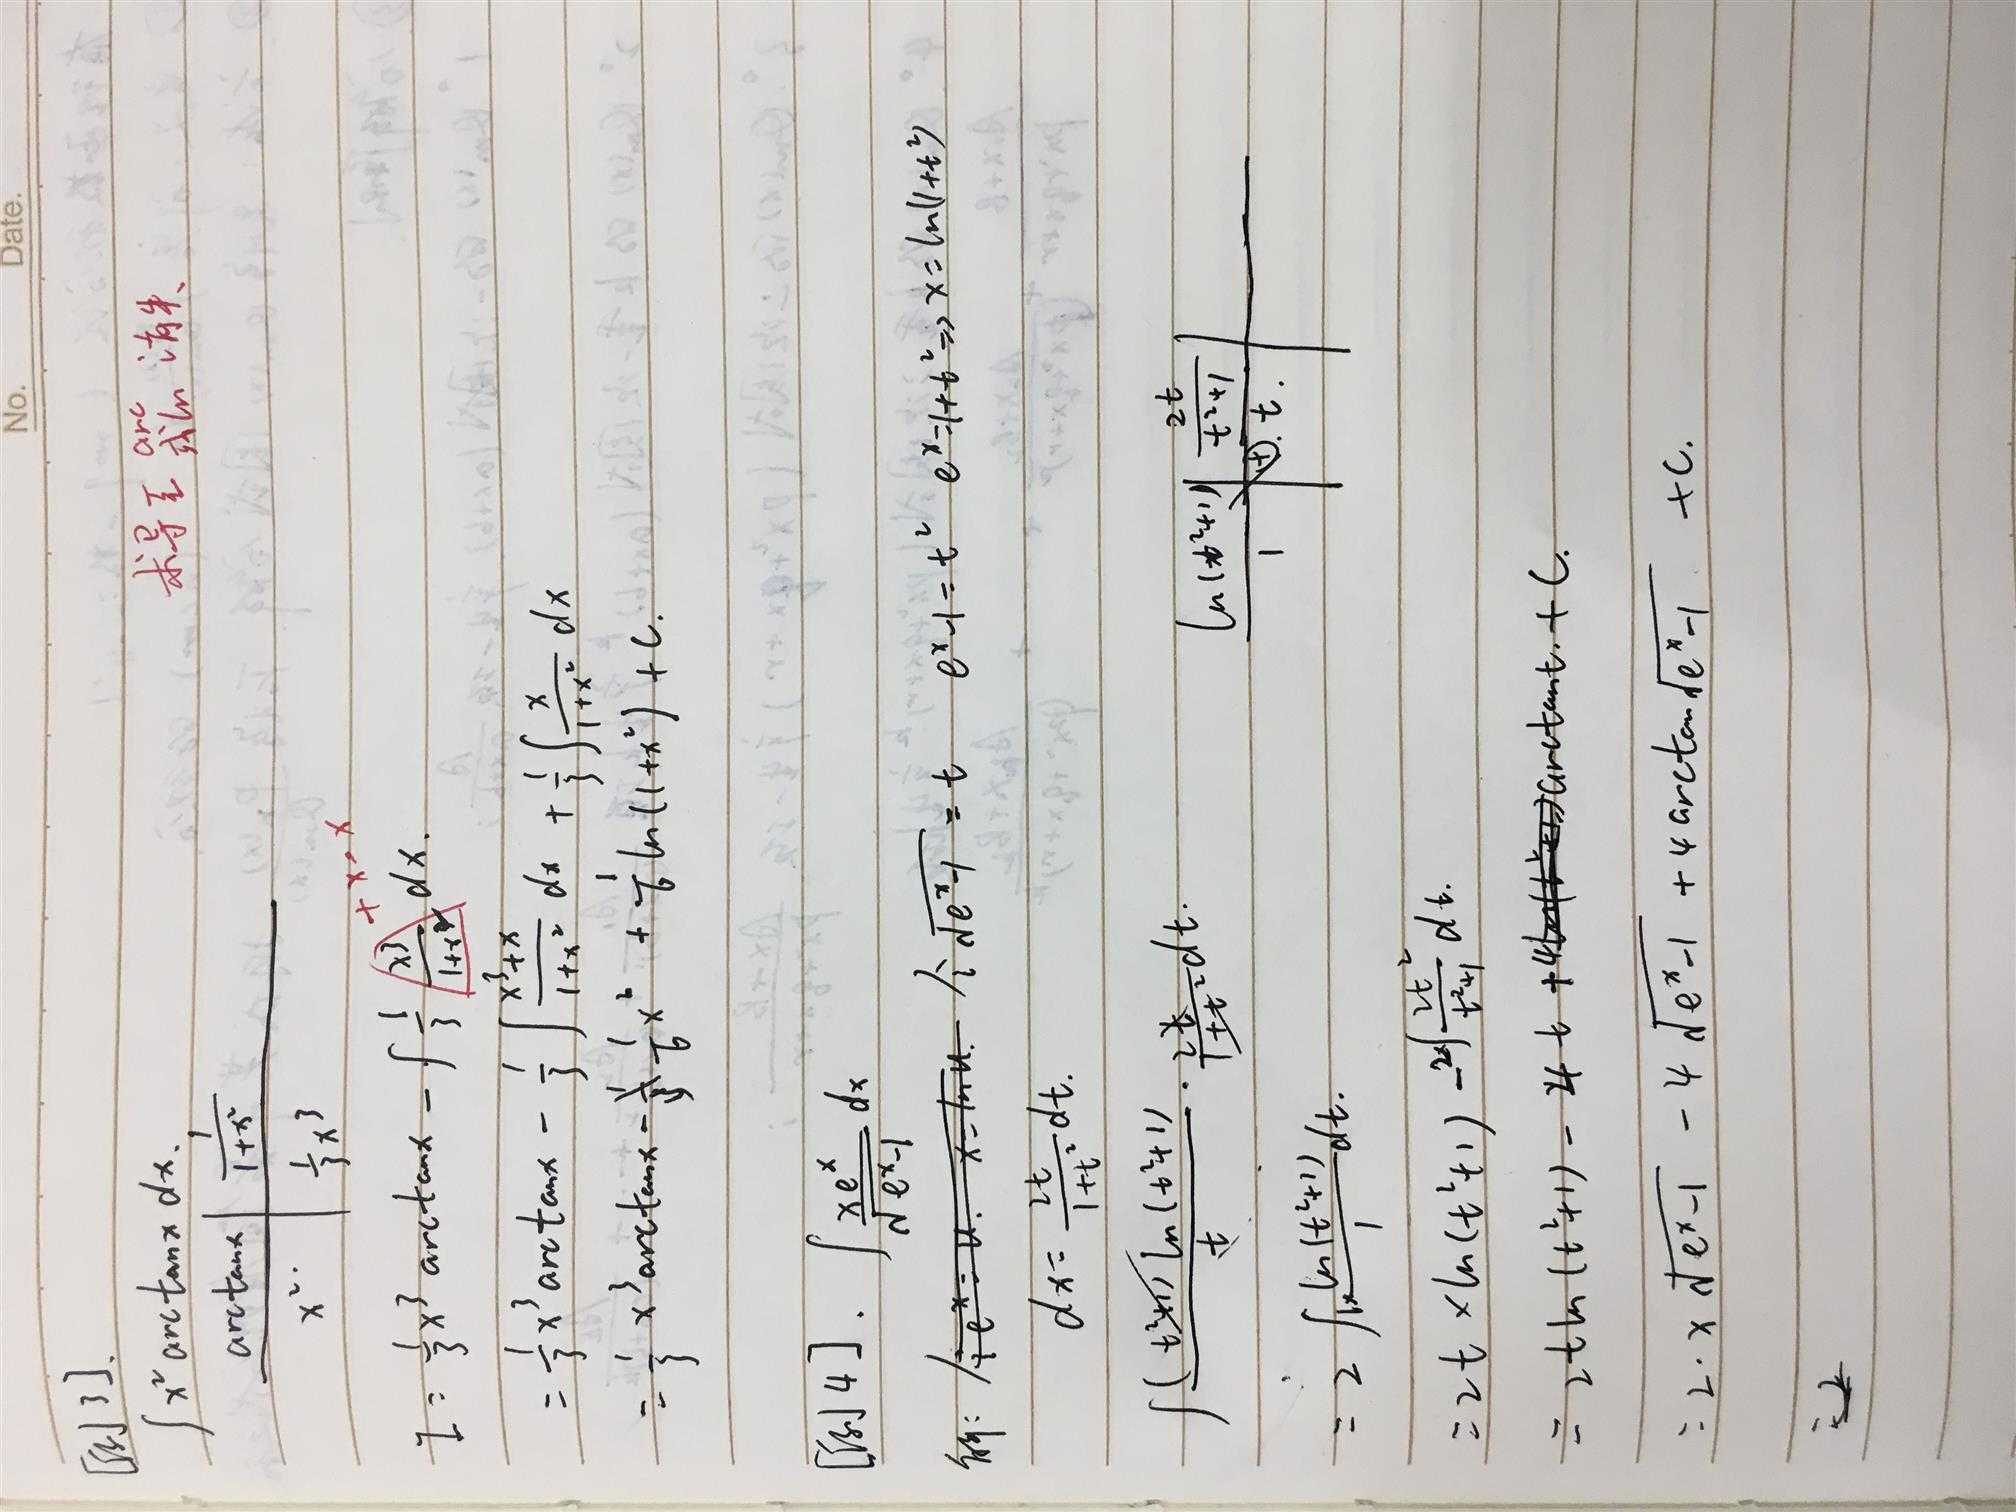 No.    Date.
[例3].
求导至 arc 或ln 消失、
∫x² arctanx dx.
arctanx | 1/(1+x²)
x². | 1/3 x³
+x-x
I = 1/3 x³ arctanx - ∫ 1/3 x³/(1+x²) dx.
= 1/3 x³ arctanx - 1/3 ∫ (x³+x)/(1+x²) dx + 1/3 ∫ x/(1+x²) dx
= 1/3 x³ arctanx - 1/6 x² + 1/6 ln(1+x²) + C.
[例4]. ∫ xeˣ/√(eˣ-1) dx
解: 令√(eˣ-1) = t  eˣ-1=t²  eˣ=1+t² => x=ln(1+t²)
dx = 2t/(1+t²) dt.
∫ (t²+1) ln(t²+1)/t · 2t/(1+t²) dt.
ln(t²+1) | 2t/(t²+1)
1 | (+). t.
= 2 ∫ ln(t²+1)/1 dt.
= 2t × ln(t²+1) - 2∫ 2t²/(t²+1) dt.
= 2t ln(t²+1) - 4t + 4arctant. + C.
= 2·x √(eˣ-1) - 4√(eˣ-1) + 4arctan√(eˣ-1) + C.